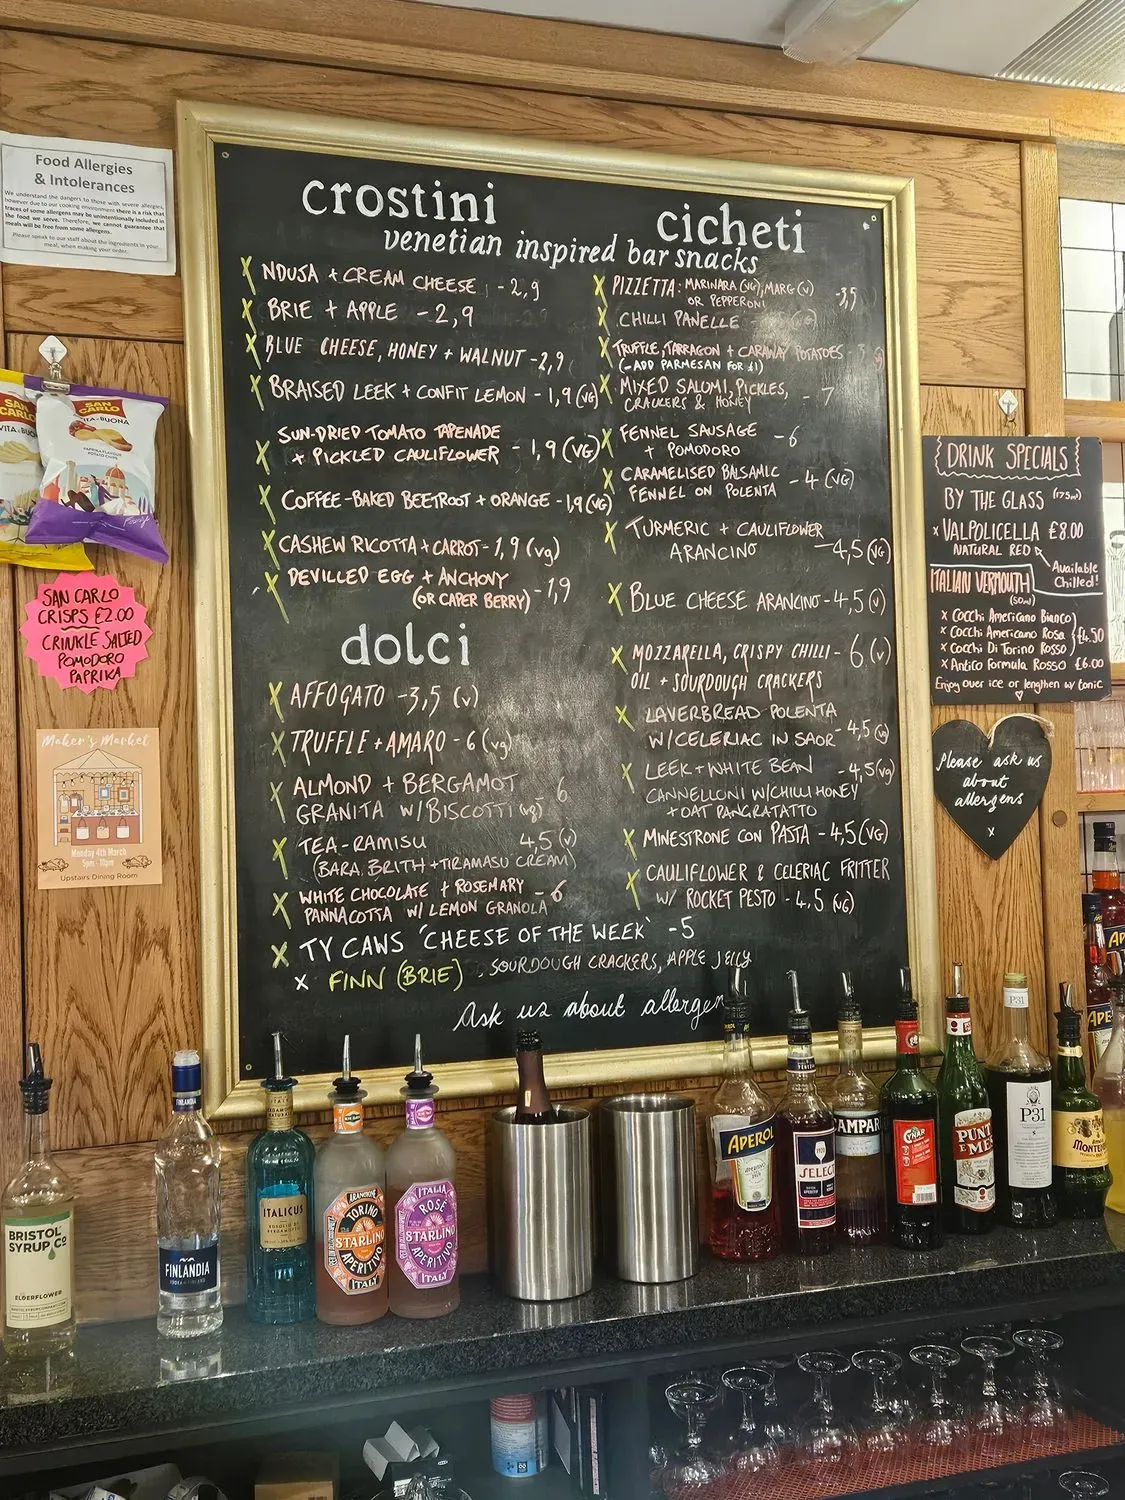 Food Allergies
& Intolerances
We understand the dangers to those with severe allergies,
however due to our cooking environment there is a risk that
traces of some allergens may be unintentionally included in
the food we serve. Therefore, we cannot guarantee that
meals will be free from some allergens.
Please speak to our staff about the ingredients in your
meal, when making your order.
crostini
cicheti
venetian inspired bar snacks
x NDUJA + CREAM CHEESE - 2,9
x BRIE + APPLE - 2,9
x BLUE CHEESE, HONEY + WALNUT - 2,9
x BRAISED LEEK + CONFIT LEMON - 1,9 (VG)
x SUN-DRIED TOMATO TAPENADE
+ PICKLED CAULIFLOWER - 1,9 (VG)
x COFFEE-BAKED BEETROOT + ORANGE - 1,9 (VG)
x CASHEW RICOTTA + CARROT - 1,9 (vg)
x DEVILLED EGG + ANCHOVY
(OR CAPER BERRY) - 1,9
dolci
x AFFOGATO - 3,5 (v)
x TRUFFLE + AMARO - 6 (vg)
x ALMOND + BERGAMOT
GRANITA W/ BISCOTTI (vg) 6
x TEA-RAMISU 4,5 (v)
(BARA BRITH + TIRAMASU CREAM)
x WHITE CHOCOLATE + ROSEMARY
PANNACOTTA W/ LEMON GRANOLA - 6
x TY CAWS 'CHEESE OF THE WEEK' - 5
x FINN (BRIE), SOURDOUGH CRACKERS, APPLE JELLY
x PIZZETTA: MARINARA (VG); MARG (V)
OR PEPPERONI - 3,5
x CHILLI PANELLE
x TRUFFLE, TARRAGON + CARAWAY POTATOES
(-ADD PARMESAN FOR £1)
x MIXED SALUMI, PICKLES,
CRACKERS & HONEY - 7
x FENNEL SAUSAGE
+ POMODORO - 6
x CARAMELISED BALSAMIC
FENNEL ON POLENTA - 4 (VG)
x TURMERIC + CAULIFLOWER
ARANCINO - 4,5 (VG)
x BLUE CHEESE ARANCINO - 4,5 (V)
x MOZZARELLA, CRISPY CHILLI - 6 (v)
OIL + SOURDOUGH CRACKERS
x LAVERBREAD POLENTA
W/ CELERIAC IN SAOR - 4,5 (vg)
x LEEK + WHITE BEAN - 4,5 (vg)
CANNELLONI W/ CHILLI HONEY
+ OAT PANGRATATTO
x MINESTRONE CON PASTA - 4,5 (VG)
x CAULIFLOWER & CELERIAC FRITTER
W/ ROCKET PESTO - 4,5 (VG)
Ask us about allergen
SAN CARLO
VITA BUONA
SAN CARLO
VITA & BUONA
PAPRIKA FLAVOUR
POTATO CHIPS
SAN CARLO
CRISPS £2.00
CRINKLE SALTED
POMODORO
PAPRIKA
Maker's Market
Monday 4th March
5pm - 10pm
Upstairs Dining Room
DRINK SPECIALS
BY THE GLASS (175ml)
x VALPOLICELLA £8.00
NATURAL RED
Available
Chilled!
ITALIAN VERMOUTH
(50ml)
x Cocchi Americano Bianco
x Cocchi Americano Rosa £4.50
x Cocchi Di Torino Rosso
x Antica Formula Rosso £6.00
Enjoy over ice or lengthen w/ tonic
Please ask us
about
allergens
x
BRISTOL
SYRUP Co
ELDERFLOWER
FINLANDIA
FINLANDIA
ITALICUS
ROSOLIO DI
BERGAMOTTO
ARANCIONE
TORINO
STARLINO
APERITIVO
ITALY
ITALIA
ROSÉ
STARLINO
APERITIVO
ITALY
APEROL
SELECT
CAMPARI
CYNAR
PUNT
E MES
P31
P31
MONTENEGRO
APEROL